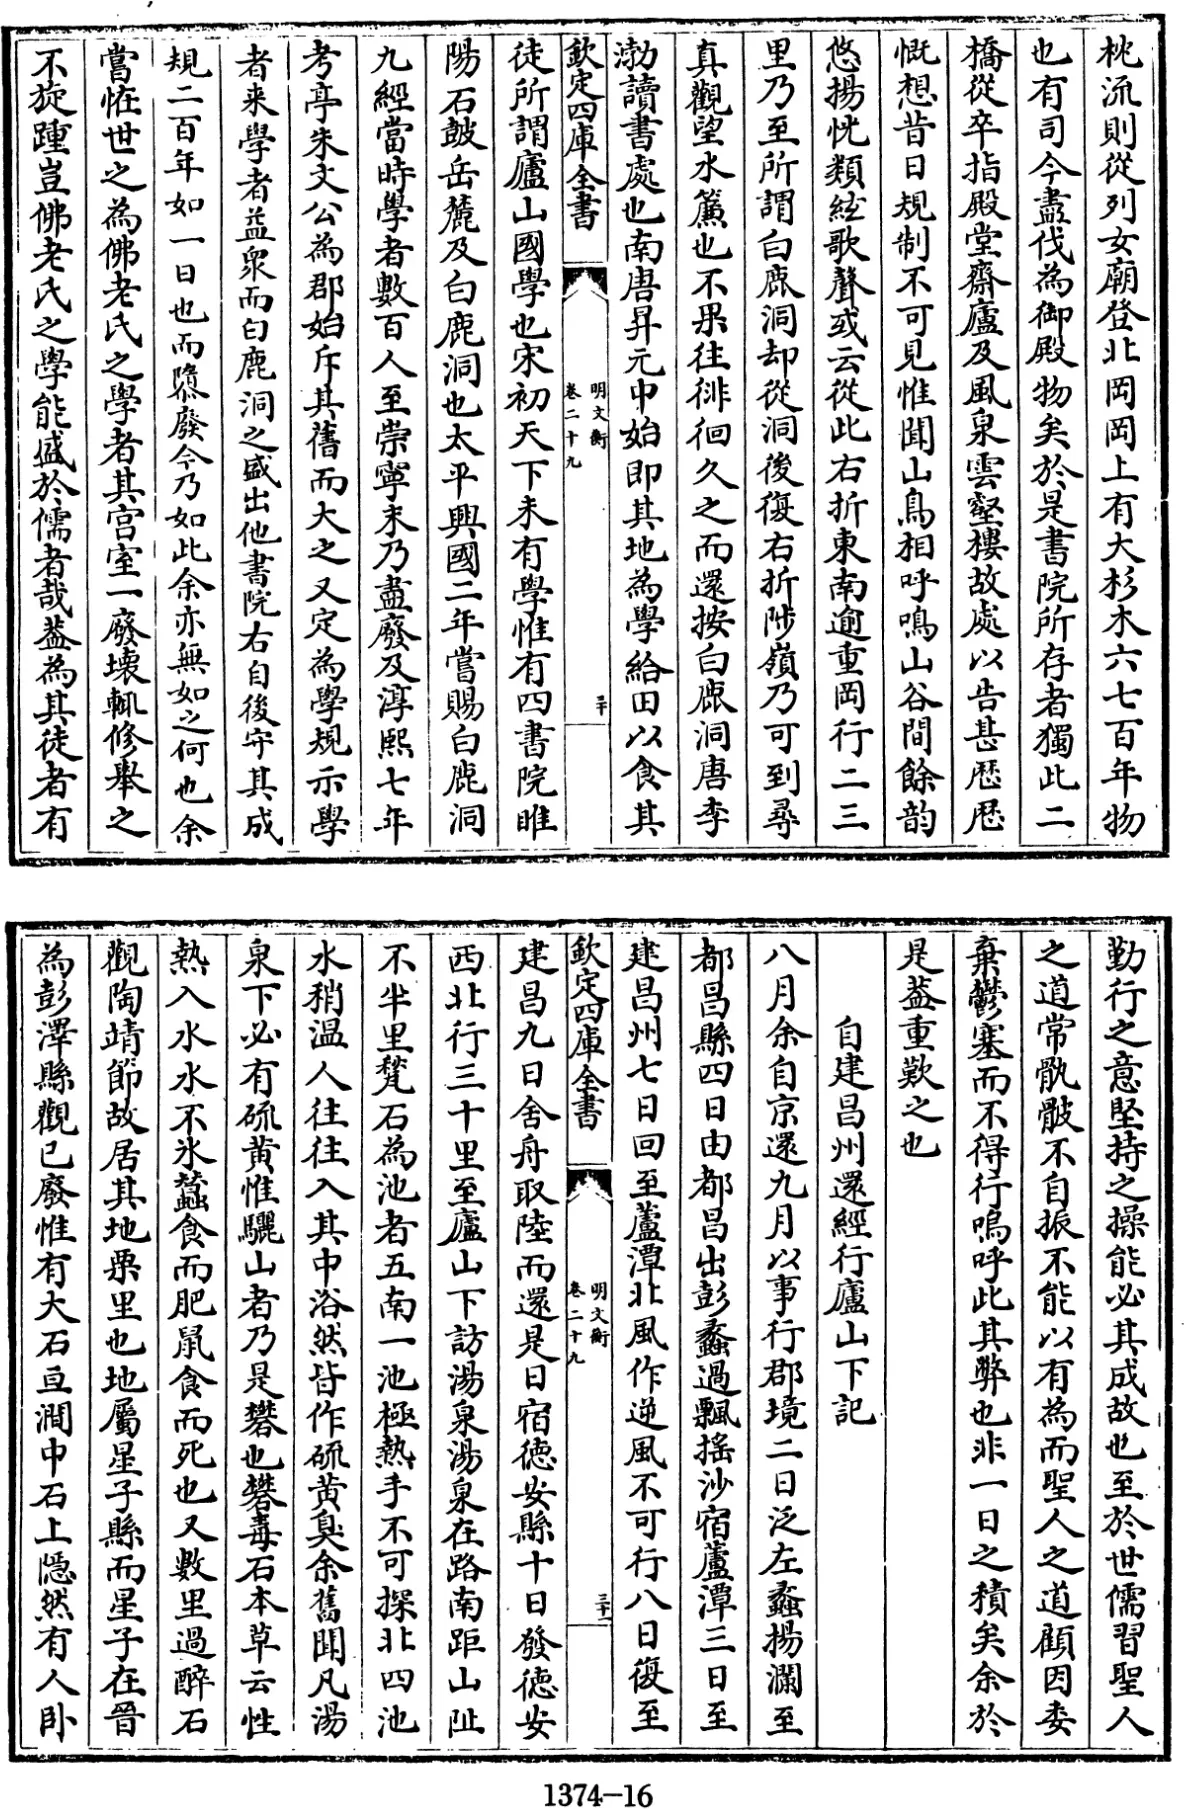 桃流則從列女廟登北岡岡上有大杉木六七百年物
也有司今盡伐為御殿物矣於是書院所存者獨此二
橋從卒指殿堂齋廬及風泉雲壑樓故處以告甚歷歷
慨想昔日規制不可見惟聞山鳥相呼鳴山谷間餘韵
悠揚恍類絃歌聲或云從此右折東南逾重岡行二三
里乃至所謂白鹿洞却從洞後復右折陟嶺乃可到尋
真觀望水簾也不果往徘徊久之而還按白鹿洞唐李
渤讀書處也南唐昇元中始即其地為學給田以食其
欽定四庫全書
明文衡
卷二十九
三十
徒所謂廬山國學也宋初天下未有學惟有四書院睢
陽石鼓岳麓及白鹿洞也太平興國二年嘗賜白鹿洞
九經當時學者數百人至崇寧末乃盡廢及淳熙七年
考亭朱文公為郡始斥其舊而大之又定為學規示學
者来學者益衆而白鹿洞之盛出他書院右自後守其成
規二百年如一日也而隳廢今乃如此余亦無如之何也余
嘗怪世之為佛老氏之學者其宫室一廢壞輒修舉之
不旋踵豈佛老氏之學能盛於儒者哉葢為其徒者有
勤行之意堅持之操能必其成故也至於世儒習聖人
之道常骫骳不自振不能以有為而聖人之道顧因委
棄鬱塞而不得行嗚呼此其弊也非一日之積矣余於
是葢重歎之也
自建昌州還經行廬山下記
八月余自京還九月以事行郡境二日泛左蠡揚瀾至
都昌縣四日由都昌出彭蠡過飄摇沙宿蘆潭三日至
建昌州七日回至蘆潭北風作逆風不可行八日復至
欽定四庫全書
明文衡
卷二十九
三十一
建昌九日舍舟取陸而還是日宿徳安縣十日發徳安
西北行三十里至廬山下訪湯泉湯泉在路南距山趾
不半里甃石為池者五南一池極熱手不可探北四池
水稍温人往往入其中浴然皆作硫黄臭余舊聞凡湯
泉下必有硫黄惟驪山者乃是礬也礬毒石本草云性
熱入水水不氷蠶食而肥鼠食而死也又數里過醉石
觀陶靖節故居其地栗里也地屬星子縣而星子在晉
為彭澤縣觀已廢惟有大石亘澗中石上隠然有人卧
1374—16